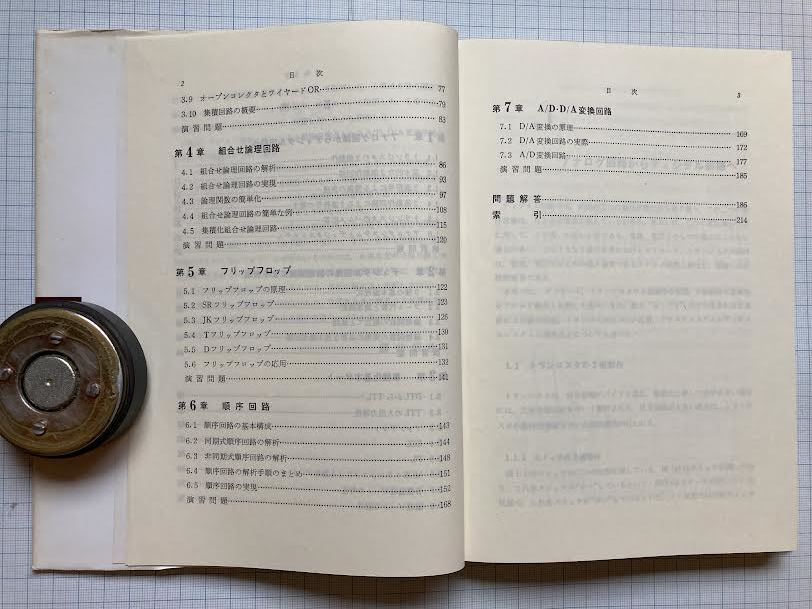 2
目 次
3.9 オープンコレクタとワイヤードOR 77
3.10 集積回路の概要 79
演習問題 83
第4章 組合せ論理回路
4.1 組合せ論理回路の解析 86
4.2 組合せ論理回路の実現 93
4.3 論理関数の簡単化 97
4.4 組合せ論理回路の簡単な例 108
4.5 集積化組合せ論理回路 115
演習問題 120
第5章 フリップフロップ
5.1 フリップフロップの原理 122
5.2 SRフリップフロップ 123
5.3 JKフリップフロップ 126
5.4 Tフリップフロップ 130
5.5 Dフリップフロップ 131
5.6 フリップフロップの応用 132
演習問題 141
第6章 順序回路
6.1 順序回路の基本構成 143
6.2 同期式順序回路の解析 144
6.3 非同期式順序回路の解析 148
6.4 順序回路の解析手順のまとめ 151
6.5 順序回路の実現 152
演習問題 168
目 次
3
第7章 A/D・D/A変換回路
7.1 D/A変換の原理 169
7.2 D/A変換回路の実際 172
7.3 A/D変換回路 177
演習問題 185
問題解答 186
索 引 214